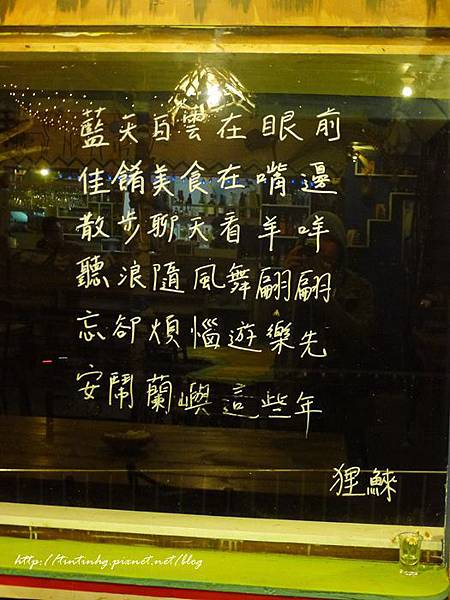 藍天白雲在眼前
佳餚美食在嘴邊
散步聊天看羊咩
聽浪隨風舞翩翩
忘卻煩惱遊樂先
安鬧蘭嶼這些年
狸鯠
http://tintinhg.pixnet.net/blog